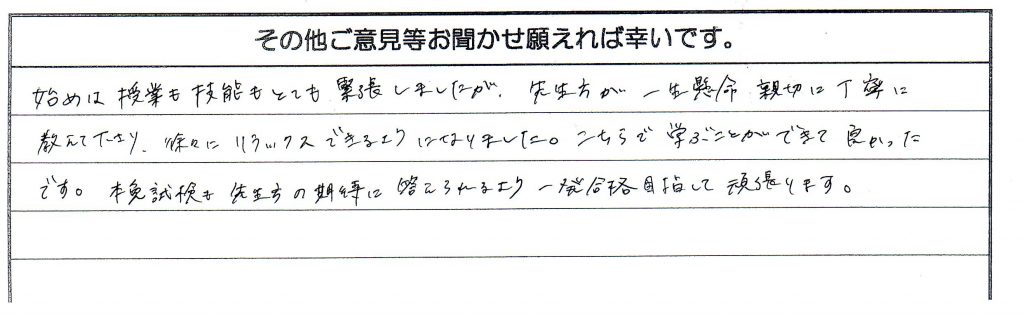 その他ご意見等お聞かせ願えれば幸いです。
始めは授業も技能もとても緊張しましたが、先生方が一生懸命親切に丁寧に
教えて下さり、徐々にリラックスできるようになりました。こちらで学ぶことができて良かった
です。本免試検も先生方の期待に答えられるよう一発合格目指して頑張ります。